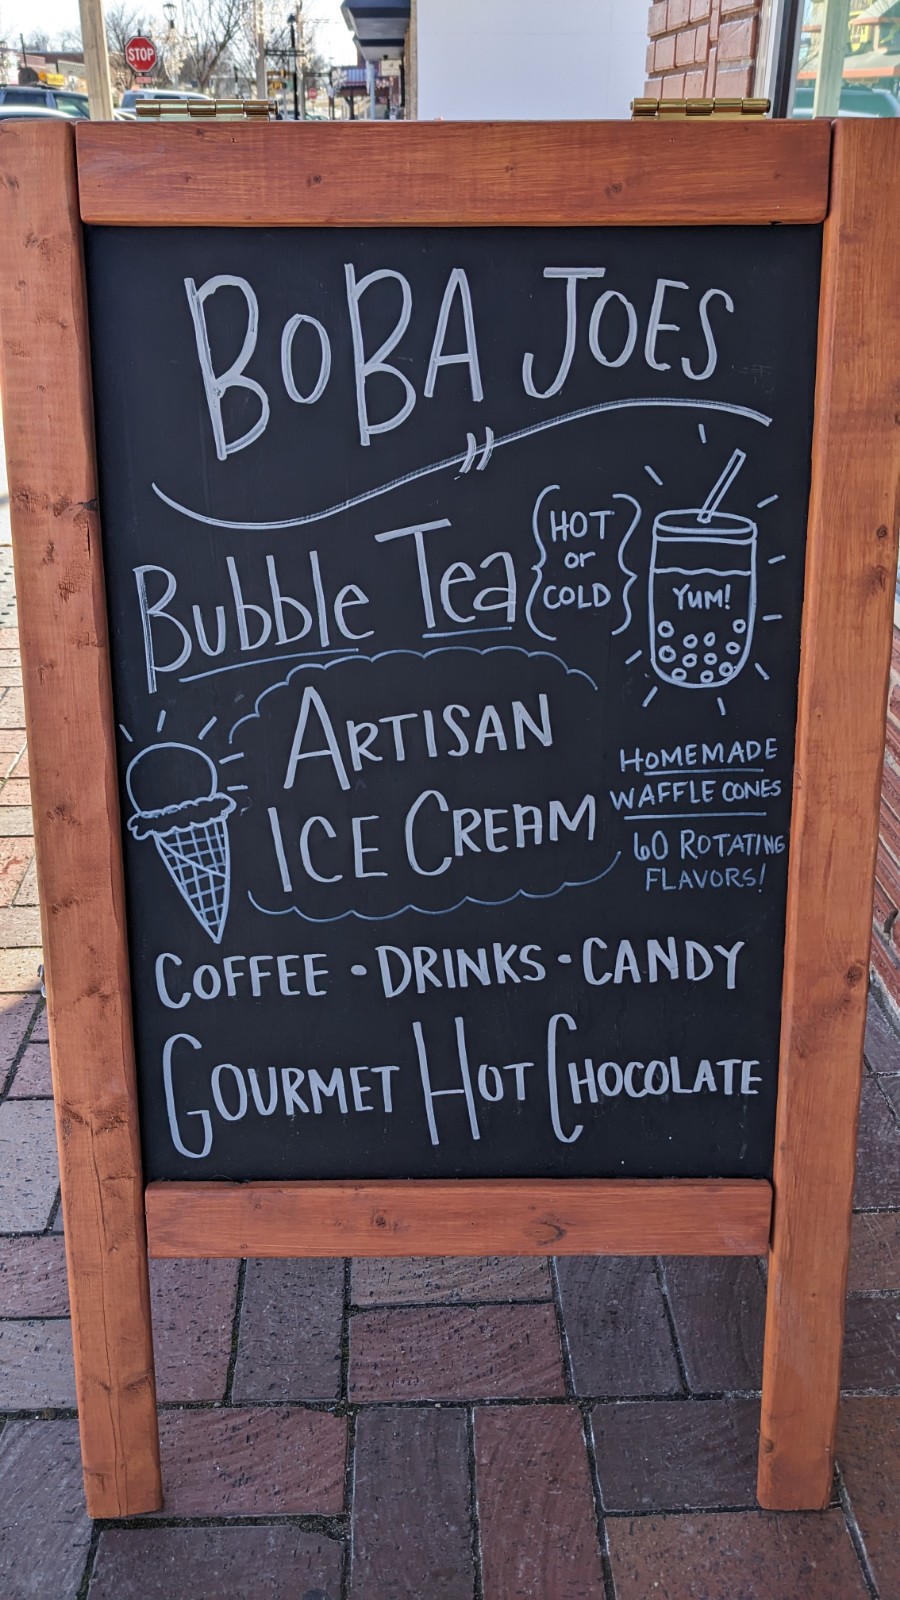 STOP
BOBA JOES
Bubble Tea
HOT
or
COLD
YUM!
ARTISAN
ICE CREAM
HOMEMADE
WAFFLE CONES
60 ROTATING
FLAVORS!
COFFEE • DRINKS • CANDY
GOURMET HOT CHOCOLATE